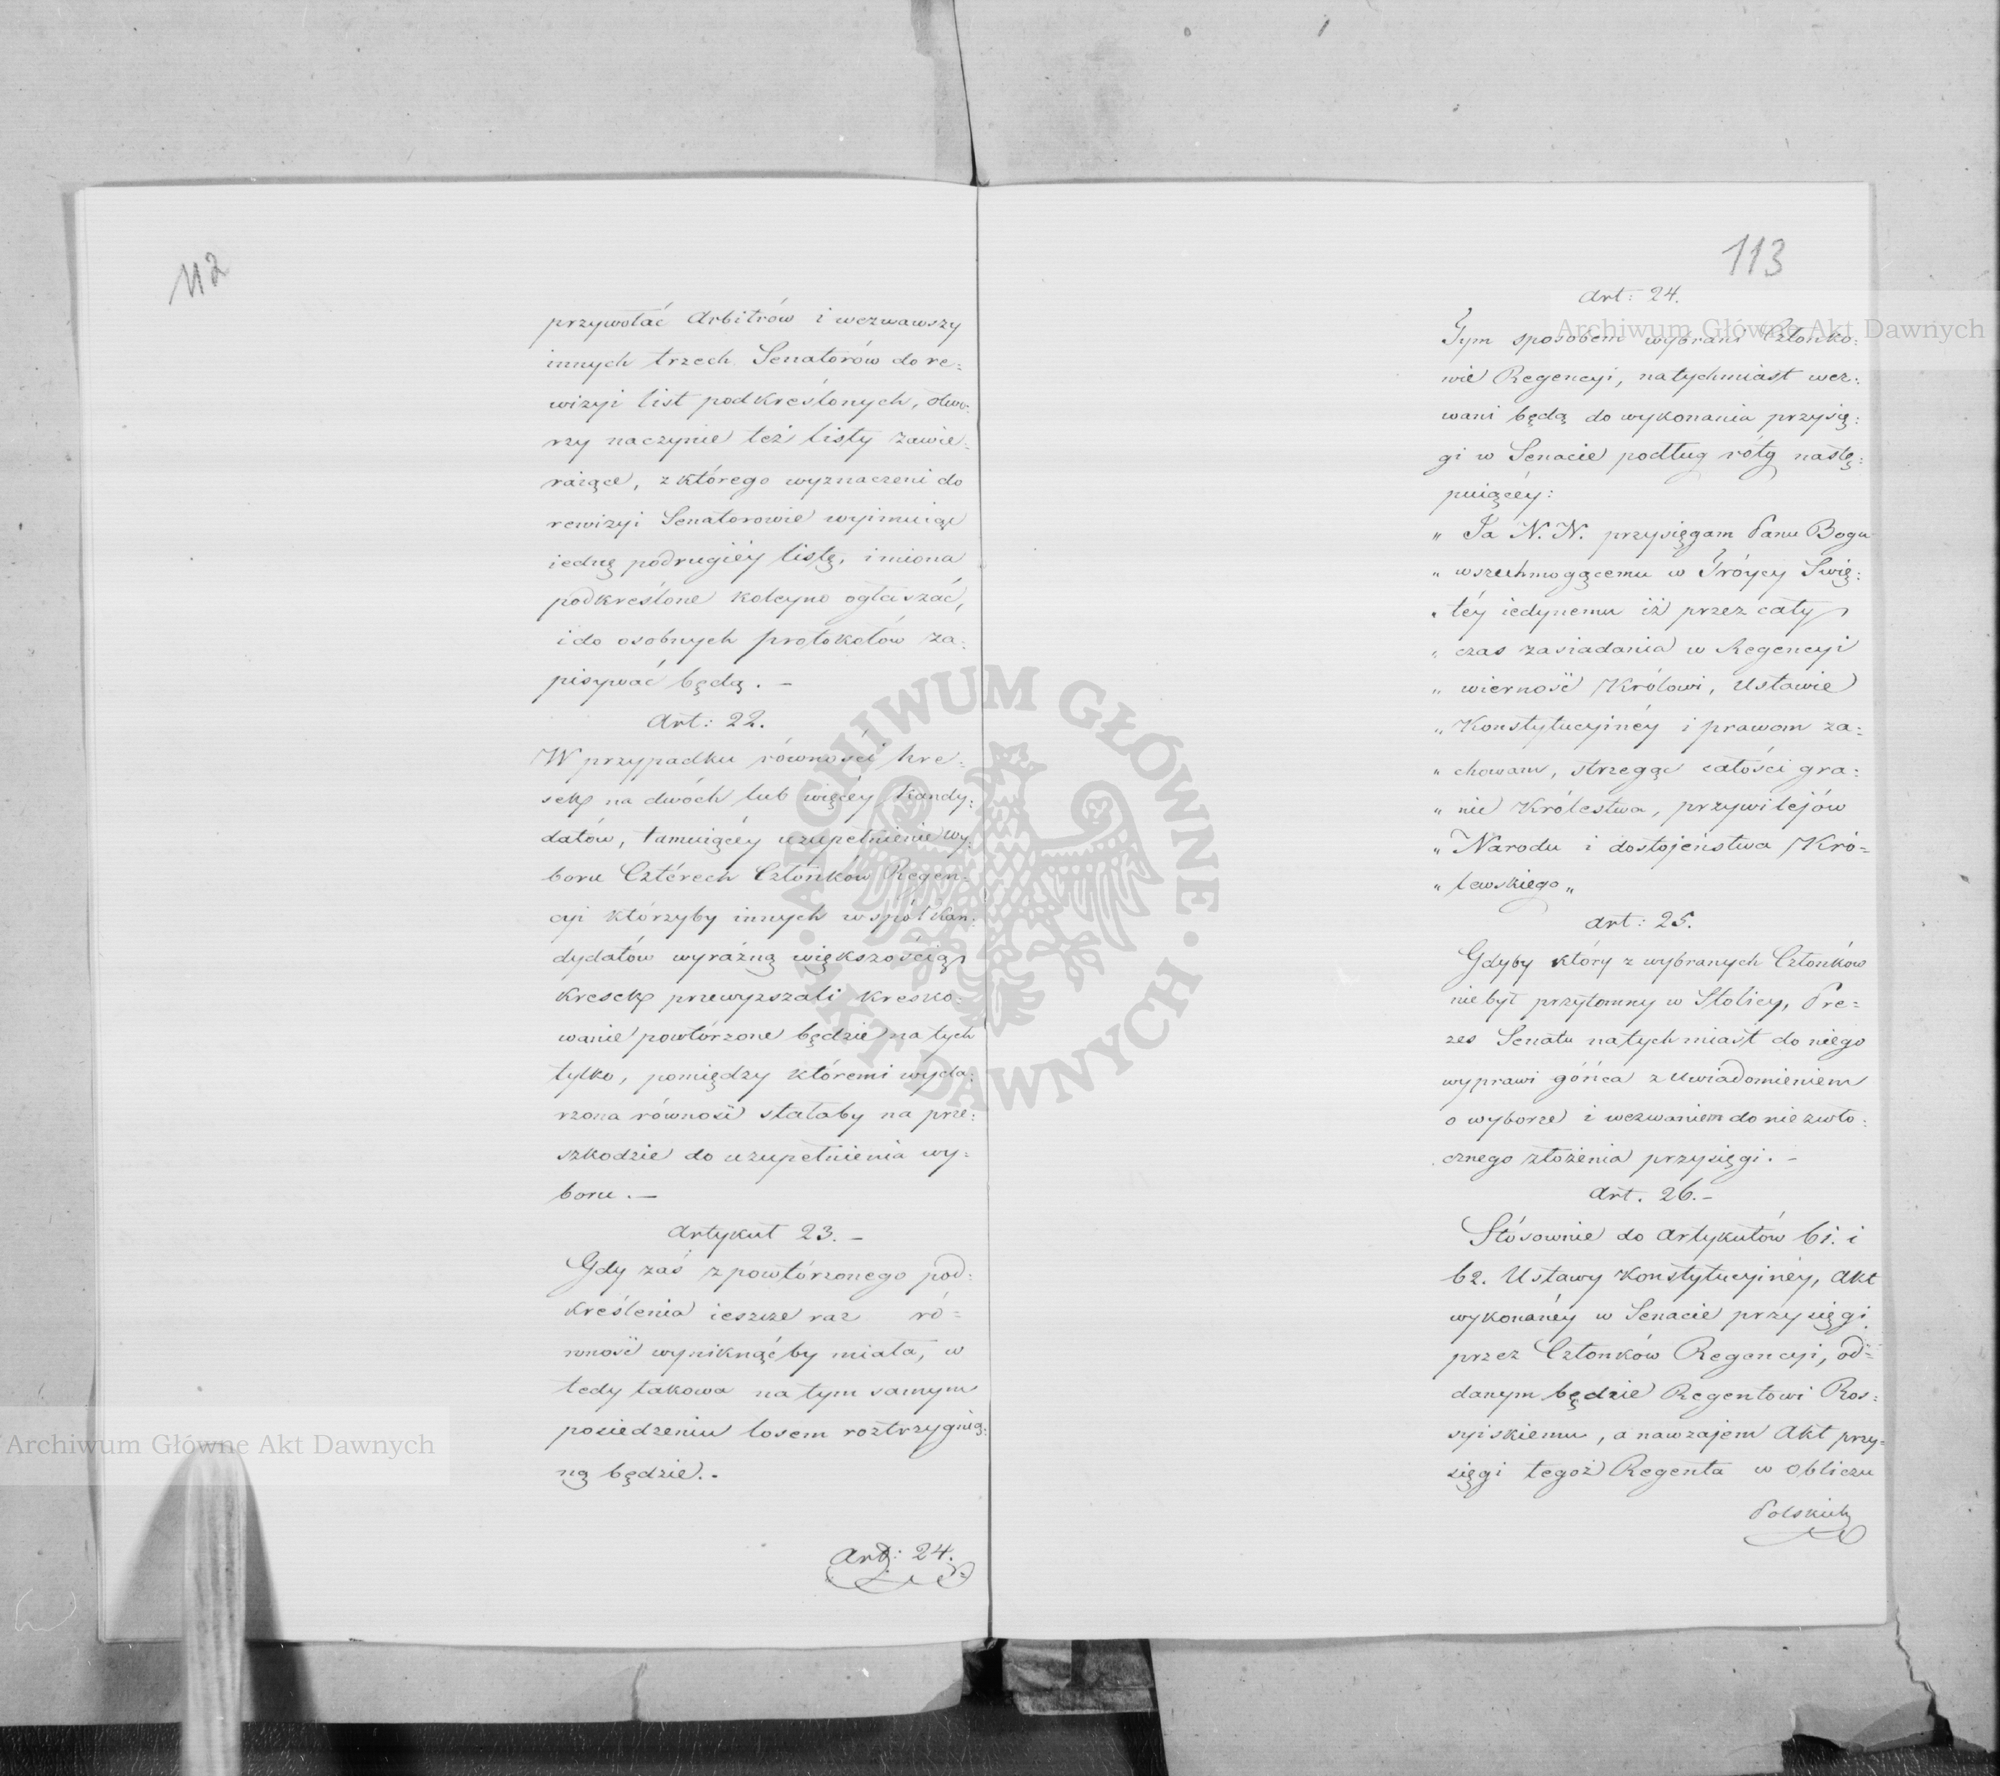 112
przywołać Arbitrów i wezwawszy
innych trzech Senatorów do re:
wizyi list podkreślonych, otwo:
rzy naczynie też listy zawie:
raiące, z którego wyznaczeni do
rewizyi Senatorowie wyimuiąc
iednę podrugiéy listę, imiona
podkreślone koleyno ogłaszać,
i do osobnych protokołów za:
pisywać będą. —
Art: 22.
W przypadku równości kre:
sek na dwóch lub więcéy kandy:
datów, tamuiącéy uzupełnienie wy:
boru Cztérech Członków Regen:
cyi którzyby innych współkan:
dydatów wyraźną większością
kresek przewyższali kresko:
wanie powtórzone będzie na tych
tylko, pomiędzy któremi wyda:
rzona równość stałaby na prze:
szkodzie do uzupełnienia wy:
boru. —
Artykuł 23. —
Gdy zaś z powtórzonego pod:
kreślenia ieszcze raz ró=
wność wyniknąćby miała, w
tedy takowa na tym samym
posiedzeniu losem roztrzygnię:
tą będzie. -
Art: 24.
113
Art: 24.
Tym sposobem wybrani Członko:
wie Regencyi, natychmiast wez:
wani będą do wykonania przysię:
gi w Senacie podług róty nastę:
puiącéy:
„ Ja N. N. przysięgam Panu Bogu
„ wszechmogącemu w Tróycy Swię:
„ téy iedynemu iż przez cały
„ czas zasiadania w Regencyi
„ wierność Królowi, Ustawie
„ Konstytucyinéy i prawom za:
„ chowam, strzegąc całości gra:
„ nic Królestwa, przywilejów
„ Narodu i dostojeństwa Kró=
„ lewskiego „
Art: 25.
Gdyby który z wybranych Członków
niebył przytomny w Stolicy, Pre=
zes Senatu natychmiast do niego
wyprawi gońca z uwiadomieniem
o wyborze i wezwaniem do niezwło:
cznego złożenia przysięgi. —
Art. 26. —
Stósownie do Artykułów 61. i
62. Ustawy Konstytucyinéy, Akt
wykonanéy w Senacie przysięgi
przez Członków Regencyi, od=
danym będzie Regentowi Ros:
syiskiemu, a nawzajem Akt przy=
sięgi tegoż Regenta w obliczu
Polskich
Archiwum Główne Akt Dawnych
Archiwum Główne Akt Dawnych
ARCHIWUM GŁÓWNE · AKT DAWNYCH ·